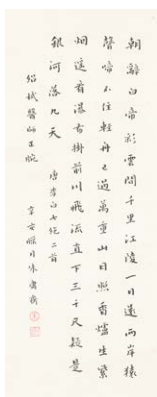 朝辭白帝彩雲間千里江陵一日還兩岸猿
聲啼不住輕舟已過萬重山日照香爐生紫
烟遥看瀑布掛前川飛流直下三千尺疑是
銀河落九天
唐李白七絕二首
紹城醫師正腕
辛安